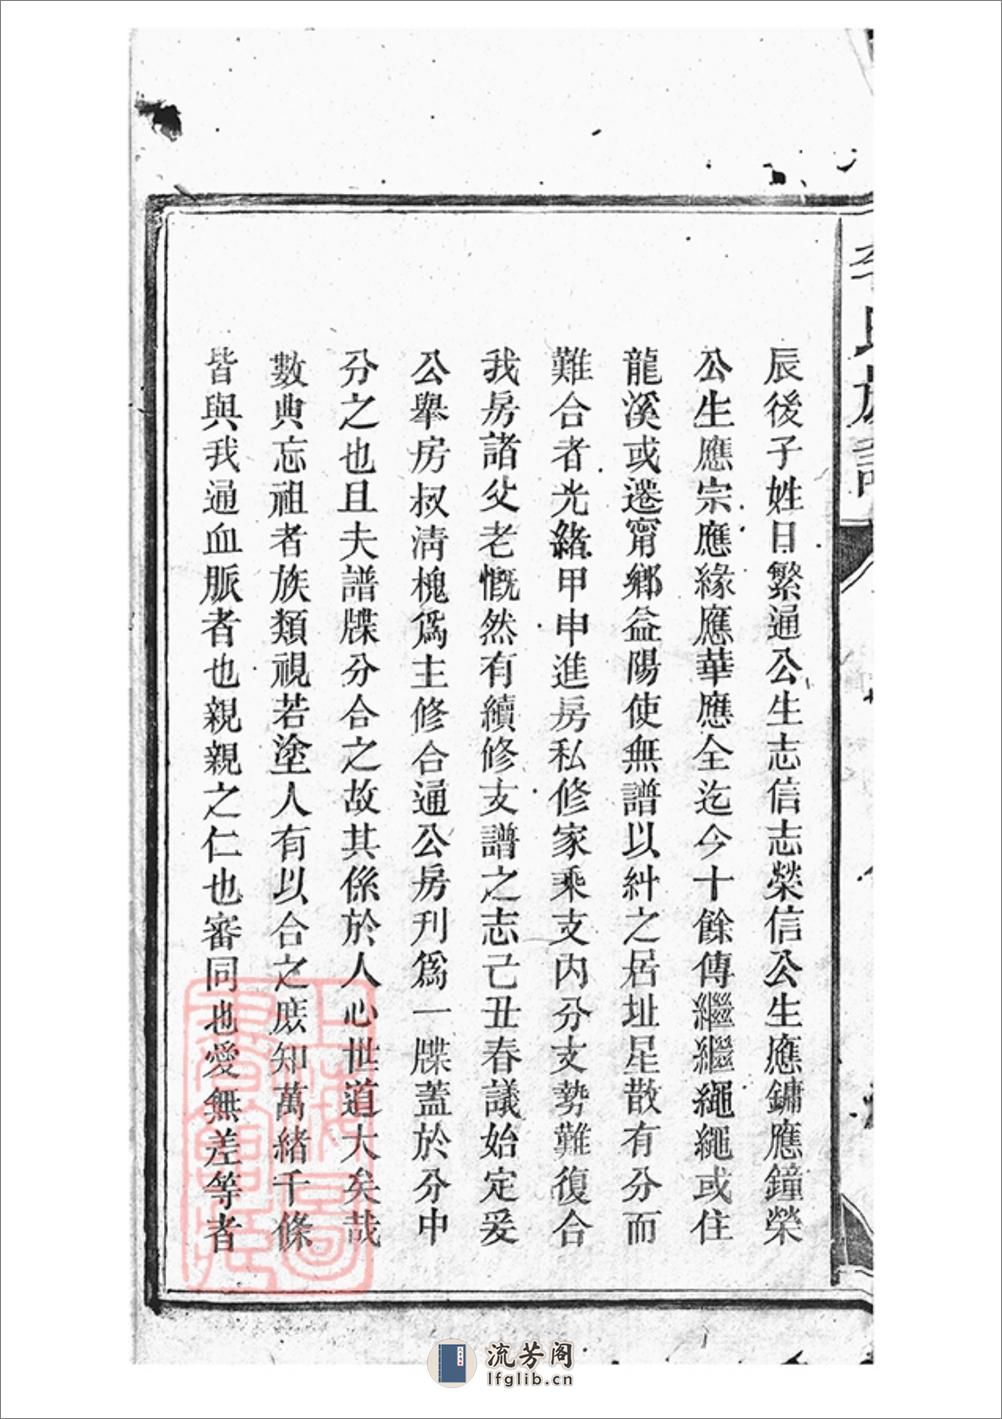 李氏族譜
辰後子姓日繁通公生志信志榮信公生應鏞應鐘榮
公生應宗應緣應華應全迄今十餘傳繼繼繩繩或住
龍溪或遷甯鄉益陽使無譜以糾之居址星散有分而
難合者光緒甲申進房私修家乘支内分支勢難復合
我房諸父老慨然有續修支譜之志己丑春議始定爰
公舉房叔清槐爲主修合通公房刋爲一牒蓋於分中
分之也且夫譜牒分合之故其係於人心世道大矣哉
數典忘祖者族類視若塗人有以合之庶知萬緒千條
皆與我通血脈者也親親之仁也審同也愛無差等者
上海圖書館藏
流芳阁
lfglib.cn